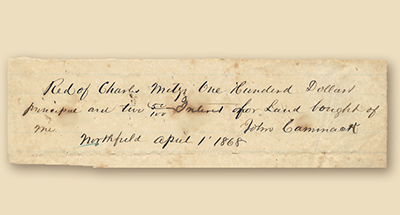 Recd of Charles Mitze One Hundred Dollars
principal and two 50/100 Interest for Land bought of
me. John Cammack
Northfield April 1st 1868